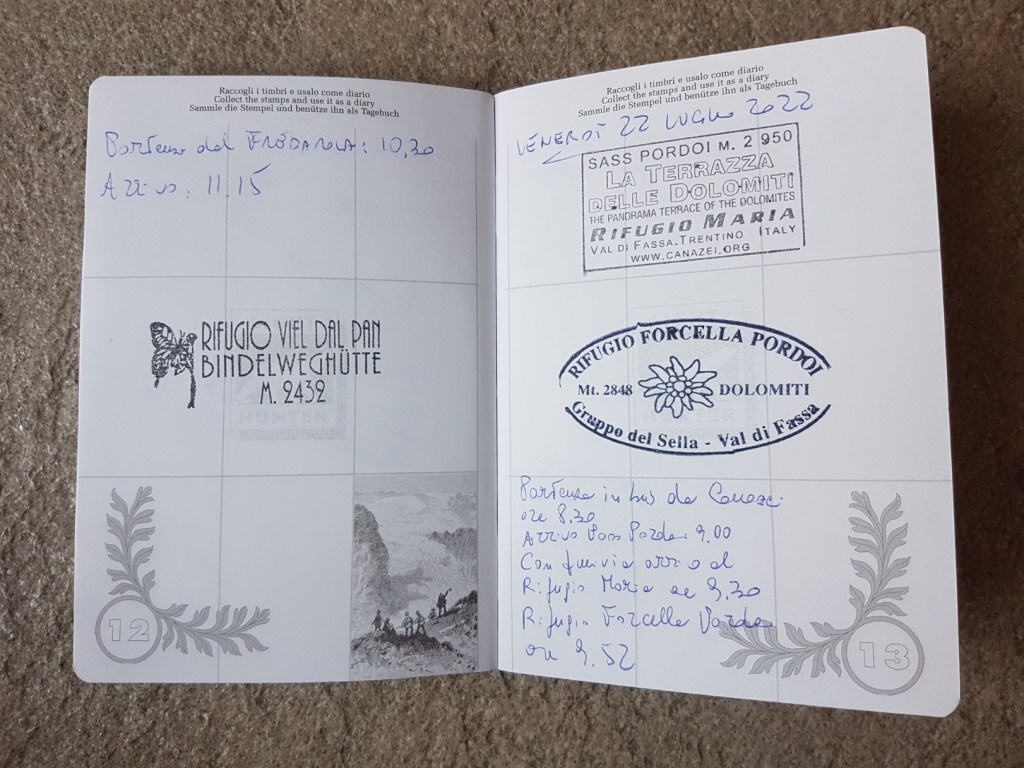 Raccogli i timbri e usalo come diario
Collect the stamps and use it as a diary
Sammle die Stempel und benütze ihn als Tagebuch
Partenza dal FREDAROLA: 10,30
Arrivo: 11.15
RIFUGIO VIEL DAL PAN
BINDELWEGHÜTTE
M. 2432
HUNTER
12
Raccogli i timbri e usalo come diario
Collect the stamps and use it as a diary
Sammle die Stempel und benütze ihn als Tagebuch
VENERDÌ 22 LUGLIO 2022
SASS PORDOI M. 2 950
LA TERRAZZA
DELLE DOLOMITI
THE PANORAMA TERRACE OF THE DOLOMITES
RIFUGIO MARIA
VAL DI FASSA.TRENTINO ITALY
WWW.CANAZEI.ORG
RIFUGIO FORCELLA PORDOI
Mt. 2848 DOLOMITI
Gruppo del Sella - Val di Fassa
HUNTER
Partenza in bus da Canazei
ore 8.30
Arrivo Pass Pordoi 9.00
Con funivia arrivo al
Rifugio Maria ore 9.30
Rifugio Forcella Pordoi
ore 9.52
13